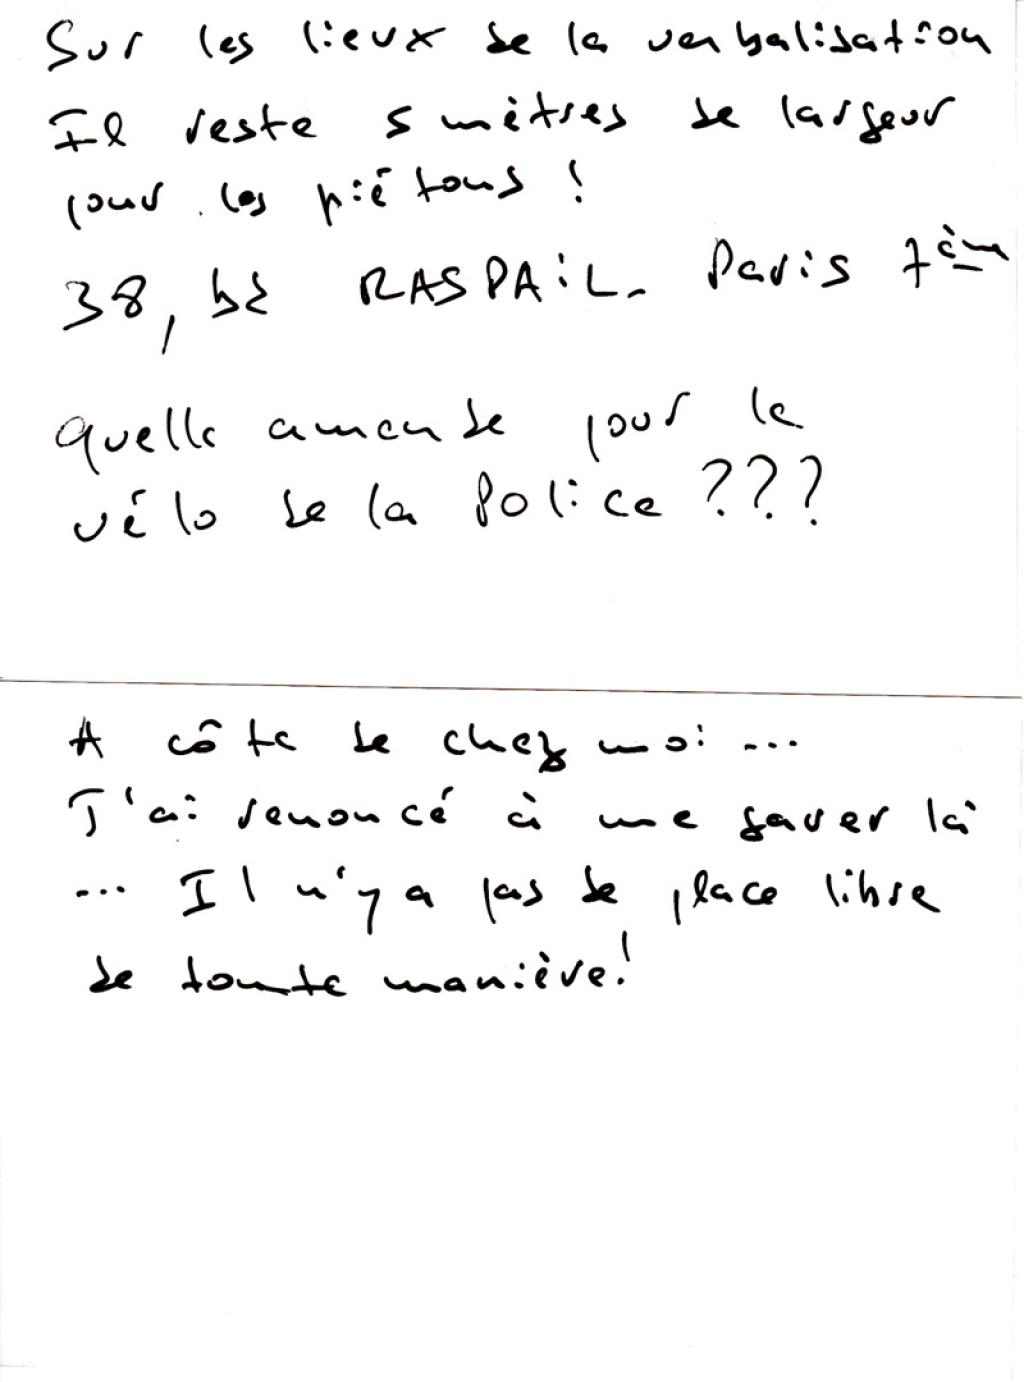 Sur les lieux de la verbalisation
Il reste 5 mètres de largeur
pour les piétons !
38, bd RASPAiL. Paris 7ème
quelle amende pour le
vélo de la Police ???
A côte de chez moi ...
J'ai renoncé à me garer là
... Il n'y a pas de place libre
de toute manière!